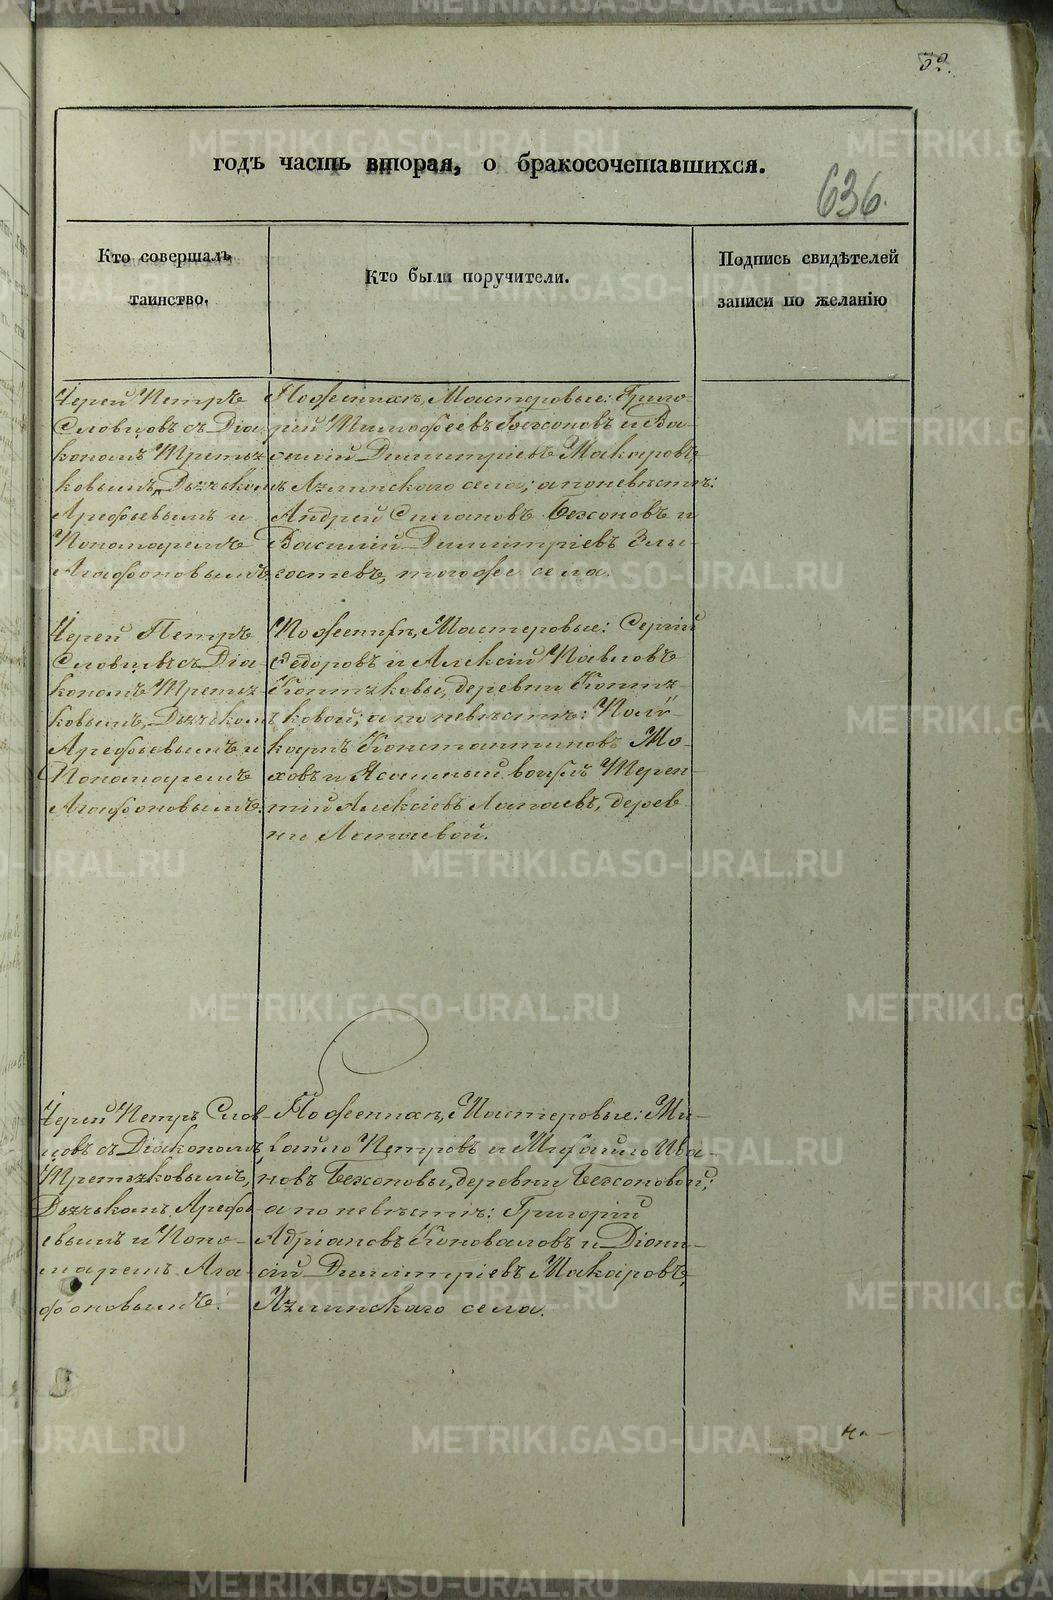 52.
годъ часть вторая, о бракосочетавшихся.
636.
Кто совершалъ
таинство.
Кто были поручители.
Подпись свидѣтелей
записи по желанію
Іерей Петръ
Словцовъ съ Діа-
кономъ Третья-
ковымъ, Дьячкомъ
Арефьевымъ и
Пономаремъ
Агафоновымъ.
По женихѣ, Мастеровые: Григо-
рій Тимофеевъ Бексоновъ и Ва-
силій Димитріевъ Макаровъ,
Аятскаго села; а по невѣстѣ:
Андрей Силановъ Бексоновъ и
Василій Димитріевъ Злы-
гостевъ, того же села.
Іерей Петръ
Словцовъ съ Діа-
кономъ Третья-
ковымъ, Дьячкомъ
Арефьевымъ и
Пономаремъ
Агафоновымъ.
По женихѣ, Мастеровые: Сергій
Ѳедоровъ и Алексій Павловъ
Коптяковы, деревни Коптя-
ковой; а по невѣстѣ: Поли-
карпъ Константиновъ Мо-
ховъ и Ясашный вогулъ Терен-
тій Алексіевъ Лапаевъ, дерев-
ни Лапаевой.
Іерей Петръ Слов-
цовъ съ Діакономъ
Третьяковымъ,
Дьячкомъ Арефь-
евымъ и Поно-
маремъ Ага-
фоновымъ.
По женихѣ, Мастеровые: Ми-
хайло Петровъ и Михайло Ива-
новъ Бексоновы, деревни Бексоновой;
а по невѣстѣ: Григорій
Адріановъ Коноваловъ и Діони-
сій Димитріевъ Макаровъ,
села.
METRIKI.GASO-URAL.RU